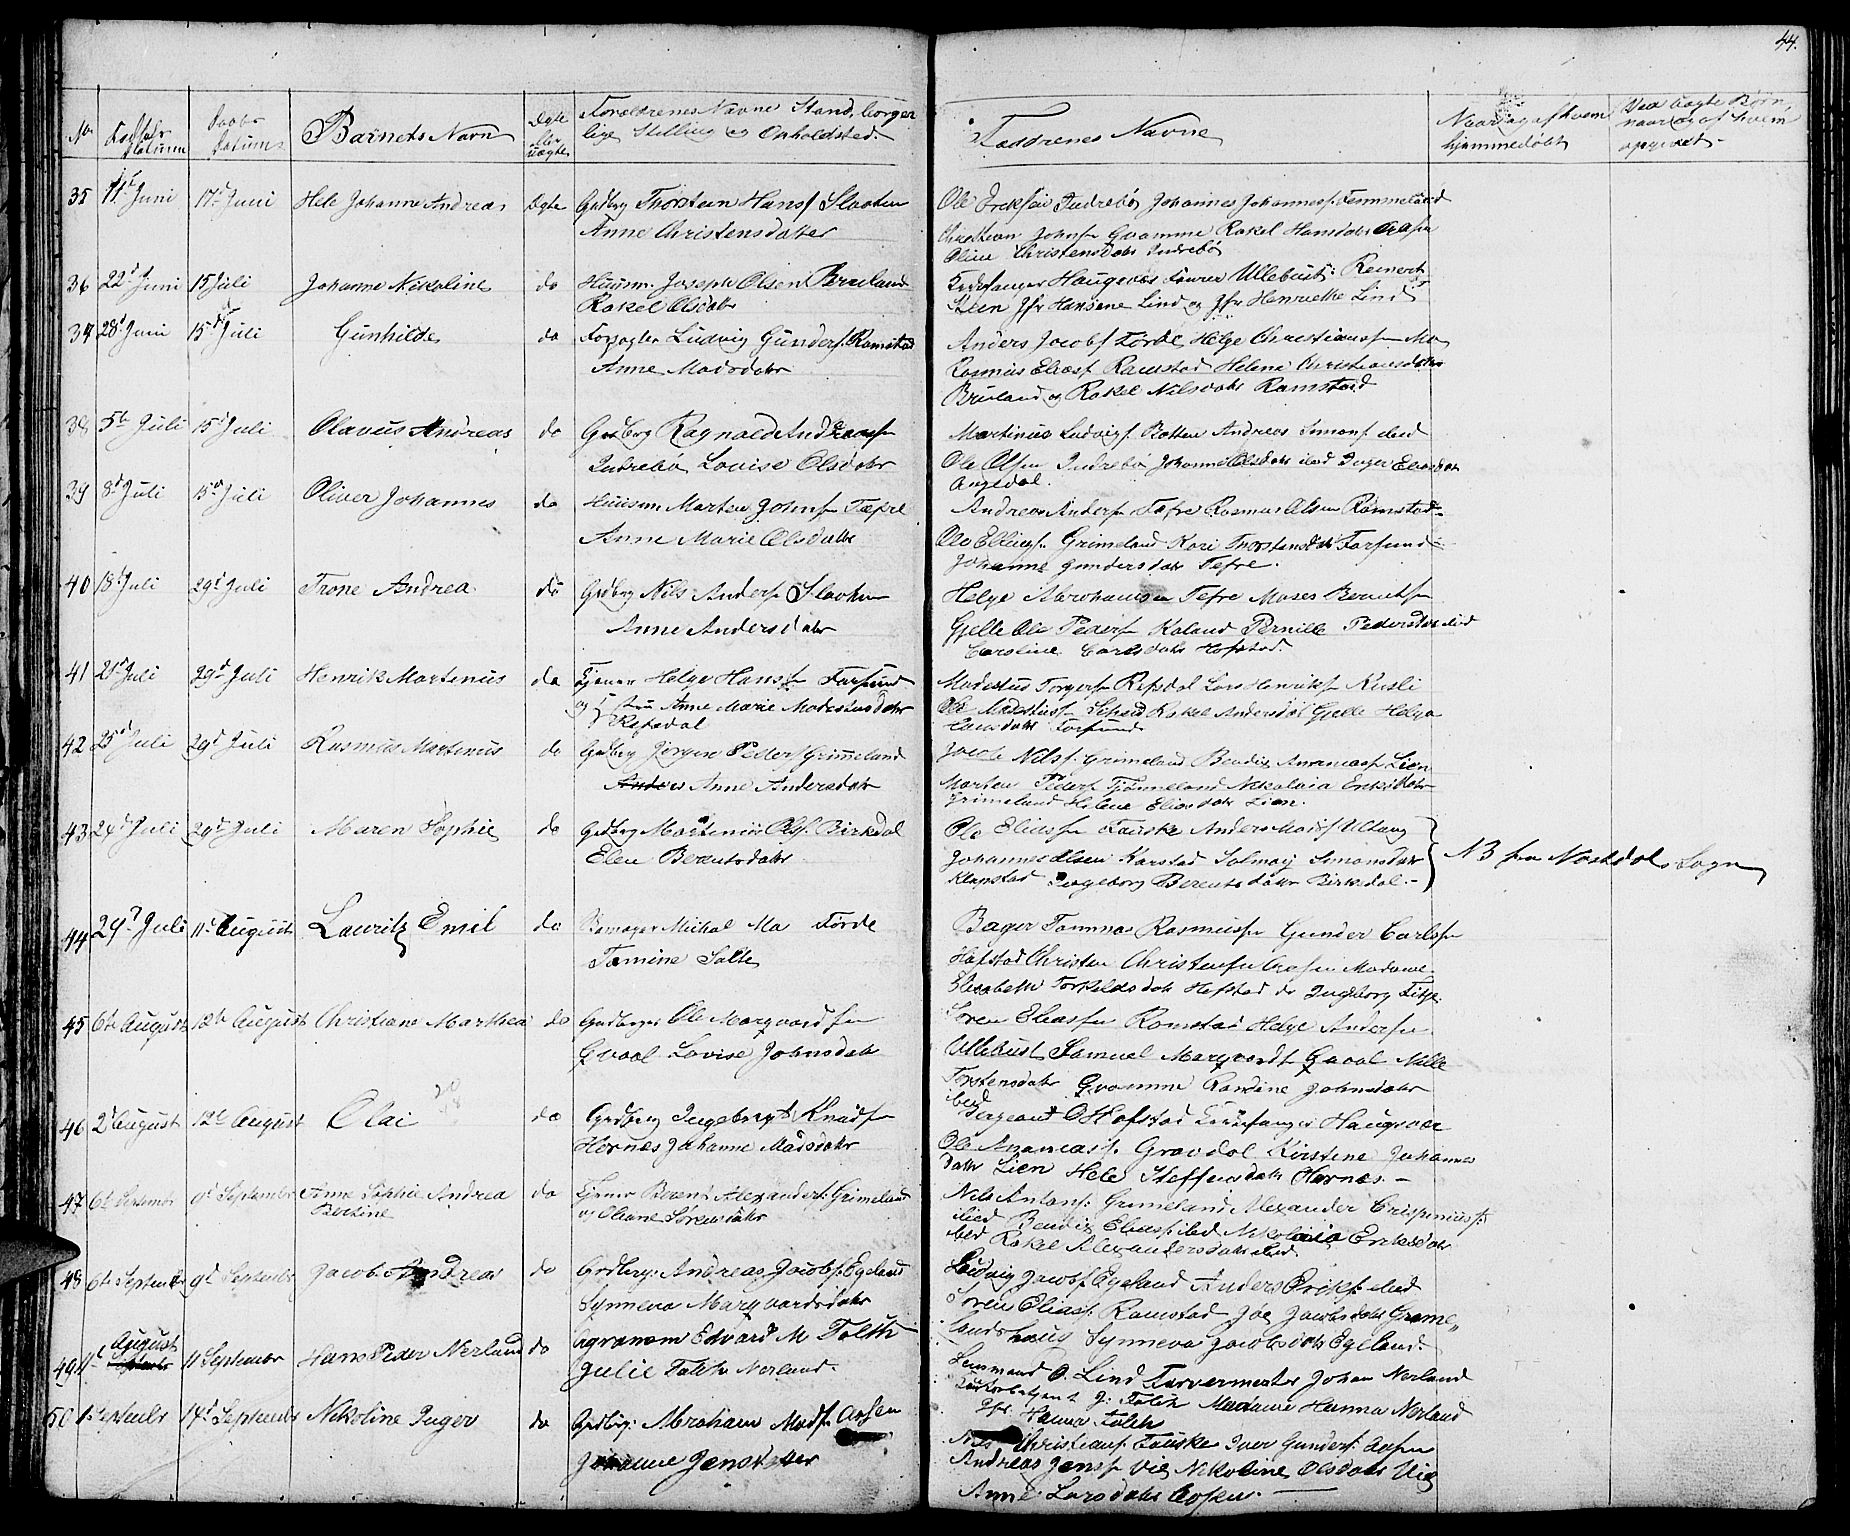 44.
No
Datum
Daabs
Datum
Barnets Navn
Ægte
eller
uægte
Forældrenes Navne Stand, borger
lige Stilling og Opholdsted.
Faddrenes Navne
Naar og af hvem
hjemmedøbt
Ved uægte Børn,
naar og af hvem
opgivet.
35 11t Juni 17d Juni Hele Johanne Andrea Ægte Gadbrg Thorsteen Hans Slaatten
Anne Christensdatter
Ole Ericksen Indrebø Johannes Johannes
Christian Johns Qvamme Rakel Hansdatr Aasen
Oline Christensdatr Indrebø
36 22d Juni 15 Juli Johanne Nikoline do Huusm. Joseph Olsen Bruland
Rakel Olsdatr
Kirkesanger Haugnæs Ullebust Reinert
Steen Jfr Hansene Lind og Jfr Henriette Lind
37 28d Juni 15d Juli Gunhilde do Ludvig Gunders Ramstad
Anne Madsdatr
Anders Jacobs Førde Helge Christians Mo
Rasmus Elias Ramstad Helene Christiansdatr
Bruland og Rakel Nilsdatr Ramstad
38 5te Juli 15d Juli Olavus Andreas do Gadbrg Ragnald Andreas
Indrebø Lovise Olsdatr
Martinus Ludvigs Slotten Andreas Simons ibid
Ole Olsen Indrebø Johanne Olsdatr ibid Inger Eliasdatr
Angedal.
39 8d Juli 15d Juli Oliver Johannes do Huusm Morten Johns Tefre
Anne Marie Olsdatr
Andreas Anders Tefre Rasmus Olsen Ramstad
Ole Ellings Grimeland Kari Thorstensdatr Farsund
Johanne Gundersdatr Tefre.
40 18d Juli 29d Juli Trone Andrea do Gadbrg Nils Anders Slaatten
Anne Andersdatr
Helge Abrahamsen Tefre Moses Berents
Gjelle Ole Peders Kaland Pernille Pedersdatr ibid
Caroline Carlsdatr Hafstad.
41 21d Juli 29d Juli Henrik Martinus do Tjener Helge Hans Farsund
og Anne Marie Modestusdatr
Refsdal
Modestus Torgers Refsdal Lars Henriks Kusli
Ole Modestus Rakel Andersdatr Gjelle Helga
Hansdatr Farsund
42 25d Juli 29d Juli Rasmus Martinus do Gadbrg Jørgen Peders Grimeland
Anders Anne Andersdatr
Jacob Nils Grimeland Bendix Ananias Lien
Morten Peders Tjømeland Nikolaia Eriksdatr
Grimeland Helene Eliasdatr Lien.
43 24d Juli 29d Juli Maren Sophie do Gadbrg Martinus Ols. Birkdal
Elen Berentsdatr
Ole Elias Fauske Anders Mads Ultang
Johannes Olsen Karstad Solmøy Simonsdatr
Klopstad Ingeborg Berentsdatr Birkedal.
NB fra Naustdals Sogn
44 29d Juli 11t August Lauritz Emil do Michal Mo Førde
Tomine Solte
Bager Tommas Rasmus Gunder Carls
Hafstad Christen Christensen Aasen Madame
Elisabeth Torkildsdatr Hafstad do Ingeborg
45 6te August 12te August Christiane Marthea do Gadbrg Ole Marqvards
Gvaal Lovise Johnsdatr
Søren Elias Ramstad Helge Anders
Ullebust Samuel Marqvards Gvaal Mille
Torstensdatr Qvamme Randine Johnsdatr
ibid
46 2d August 12te August Olai do Gadbrg Ingebrigt Knuds
Hornes Johanne Madsdatr
Sergeant O Hafstad Kirkesanger Haugnæs
Ole Ananias Gravdal Kirstene Johannes
datr Lien Hele Steffensdatr Hornes.
47 6te Septembr 9d Septembr Anne Sophie Andrea
Bertine do Tjener Berent Alexanders. Grimeland
og Oliane Sørensdatr
Nils Antons Grimeland Alexander Crispinus
ibid Bendix Elias ibid Nikolaia Eriksdatr
ibid Rakel Alexandersdatr ibid.
48 6te Septembr 9d Septembr Jacob Andreas do Gadbrg: Andreas Jacobs. Egeland
Synneva Marqvardsdatr
Ludvig Jacobs Egeland Anders Eriks ibid
Søren Elias. Ramstad Jøe Jacobsdatr Grime
landshaug Synneva Jacobsdatr Egeland.
49 4t August
Septembr 11 Septembr Hans Peder Nerland do Agronom Edvard M Falch
Julie Falch Nerland.
Lensmand O. Lind Farvermester Johan Nerland
J. Falch Madame Hanna Nerland
Jfr. Hanna Falch
50 1 Septembr 14d Septembr Nikoline Inger do Gadbrg: Abraham Mads Aasen
Johanne Jensdatter
Nils Christians. Fauske Iver Gunders. Aasen
Andreas Jens Vie Nikoline Olsdatr Vie
Anne Larsdatr Aasen.